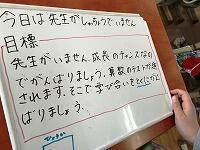 今日は先生がしゅっちょうでいません
目標
先生がいません。成長のチャンスなの
でがんばりましょう。算数のテストが返
されます。そこで学び合いをとくにがん
ばりましょう。